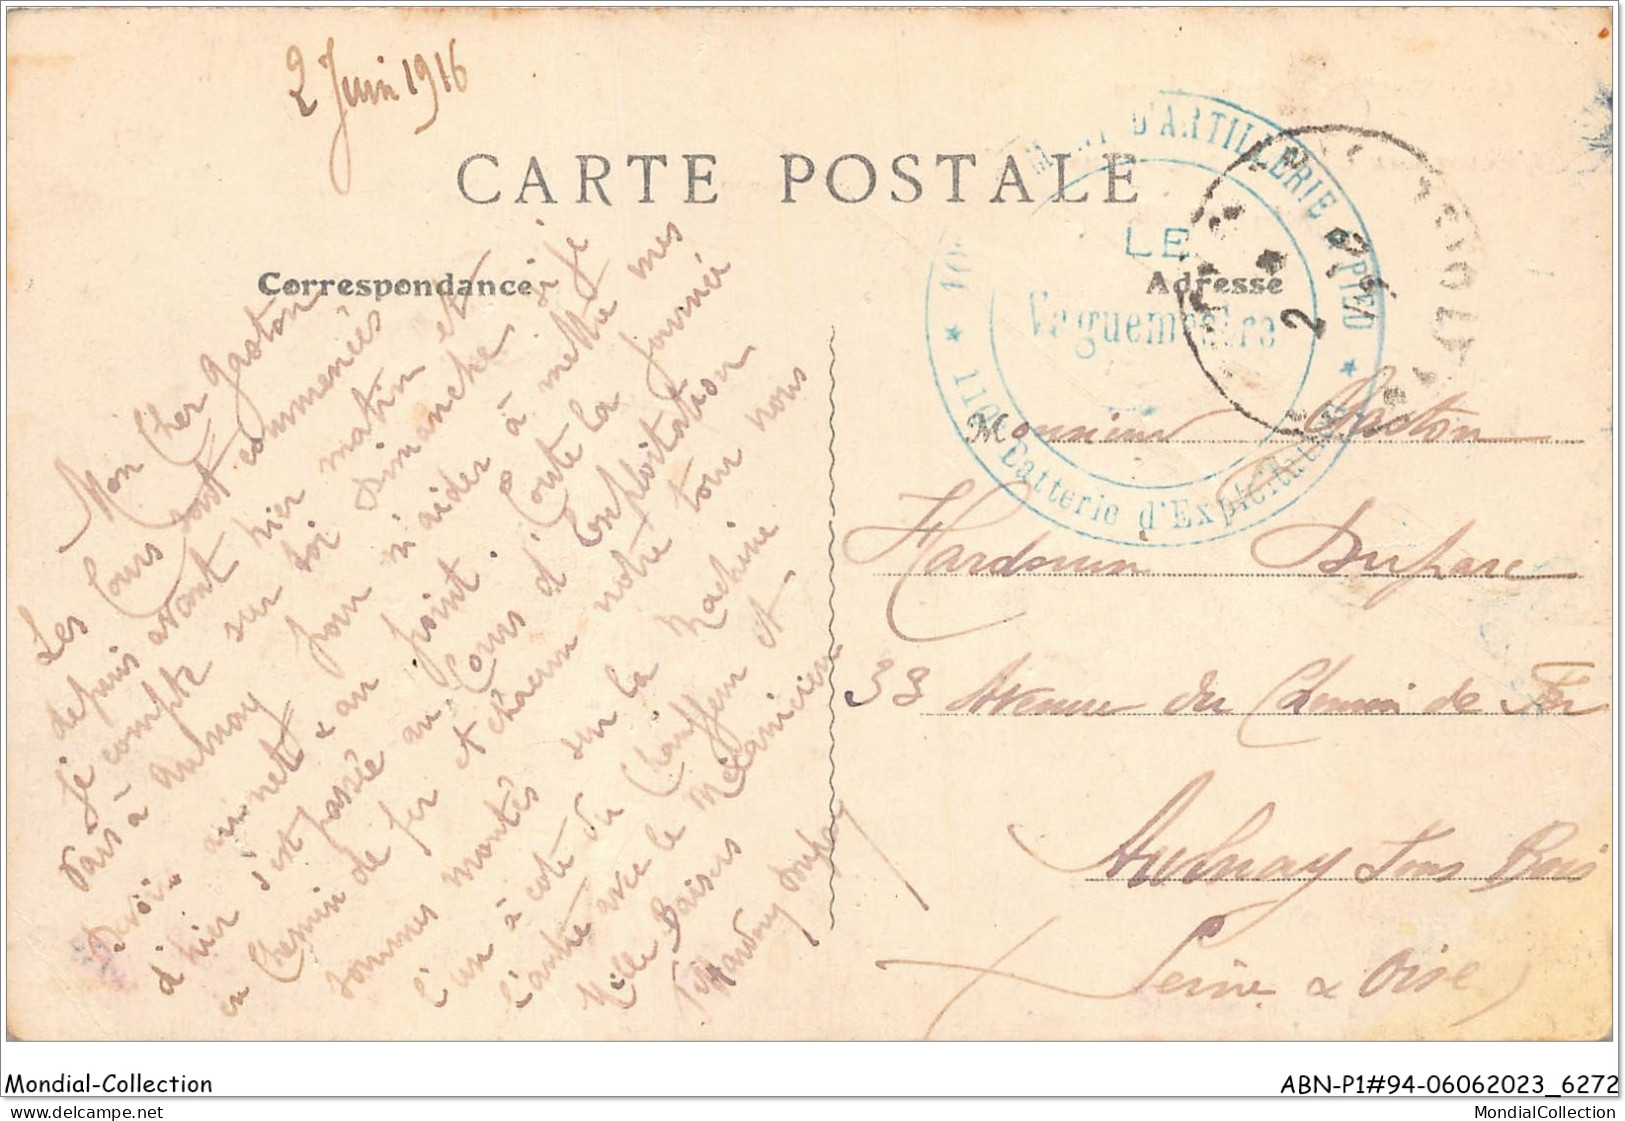 2 Juin 1916
CARTE POSTALE
Correspondance
Adresse
D'ARTILLERIE A PIED
LE
Vaguemestre
110e Batterie d'Exploitation
2
Mon Cher Gaston
Les Cours sont commencés
depuis avant hier matin et
je compte sur toi Dimanche si je
vais à Aulnay pour m'aider à mettre mes
devoirs au net & au point. Toute la journée
d'hier s'est passée au Cours d'Exploitation
en Chemin de fer et chacun notre tour nous
sommes montés sur la Machine
l'un à coté du Chauffeur et
l'autre avec le Mécanicien
Mille Baisers
Hardouin Duparc
Monsieur Gaston
Hardouin Duparc
33 Avenue du Chemin de Fer
Aulnay sous Bois
Seine & Oise
Mondial-Collection
ABN-P1#94-06062023_6272
MondialCollection